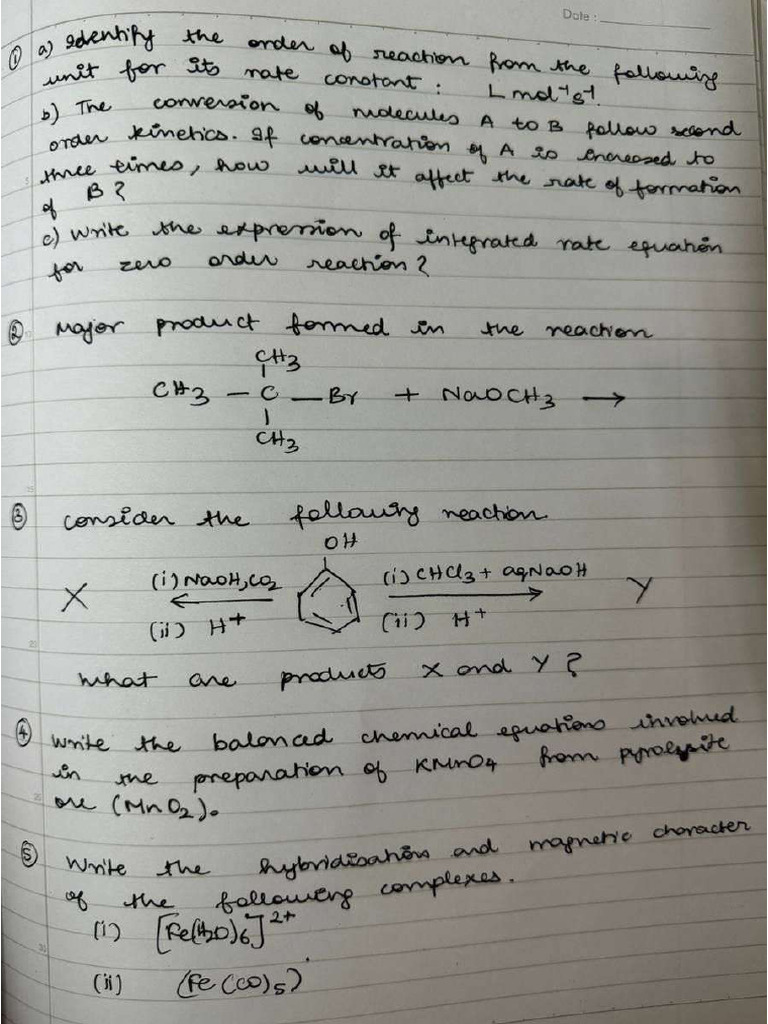 Date :
① a) Identify the order of reaction from the following
unit for its rate constant : L mol⁻¹s⁻¹.
b) The conversion of molecules A to B follow second
order kinetics. If concentration of A is increased to
three times, how will it affect the rate of formation
of B ?
c) Write the expression of integrated rate equation
for zero order reaction ?
② Major product formed in the reaction
CH3
CH3 — C — Br + NaOCH3 →
CH3
③ consider the following reaction
OH
X (i) NaOH, CO2 (i) CHCl3 + aqNaOH Y
(ii) H+ (ii) H+
What are products X and Y ?
④ Write the balanced chemical equations involved
in the preparation of KMnO4 from pyrolusite
ore (MnO2).
⑤ Write the hybridisation and magnetic character
of the following complexes.
(i) [Fe(H2O)6]²⁺
(ii) (Fe(CO)5)